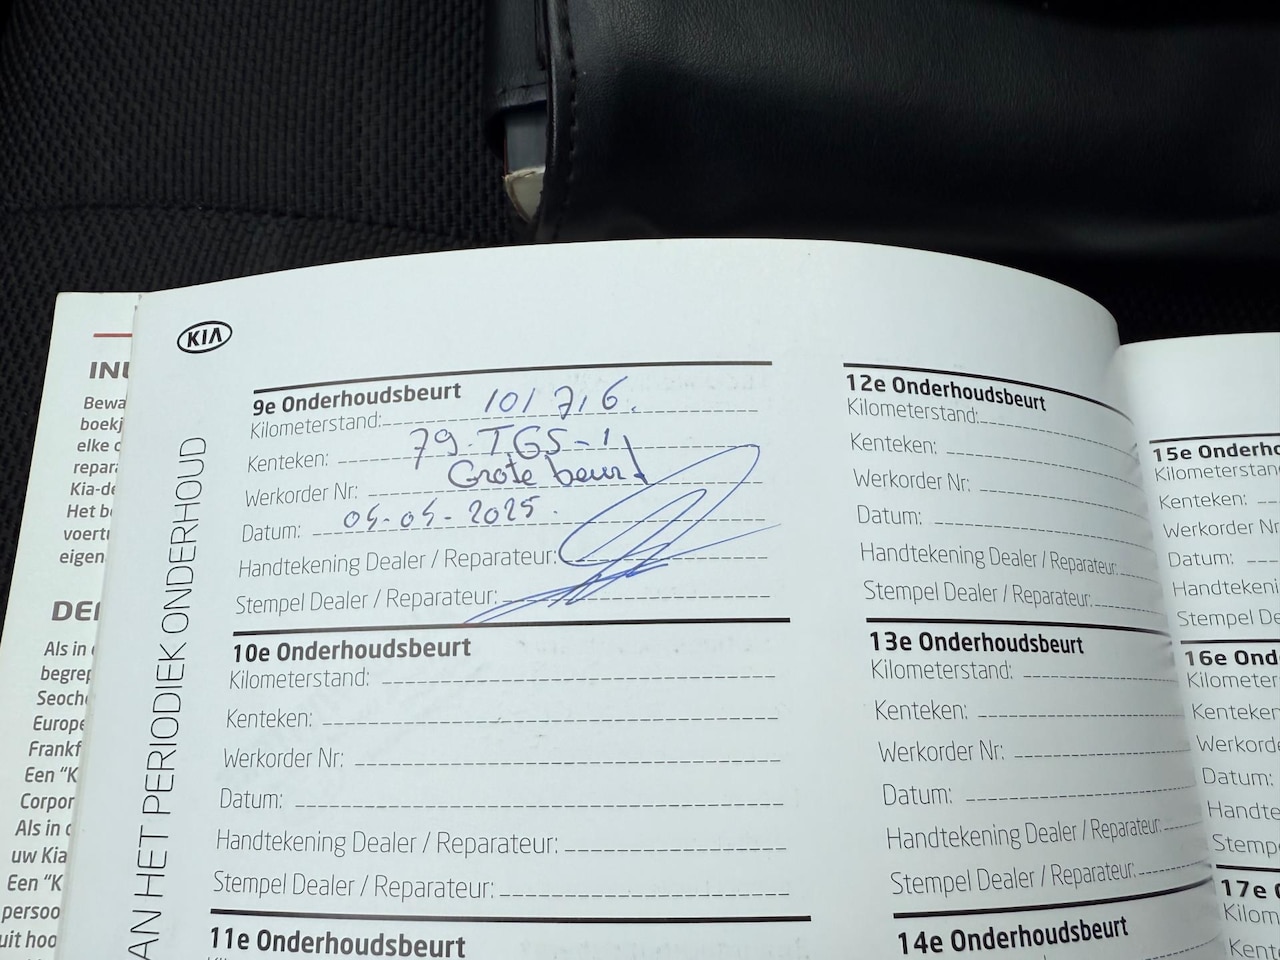 KIA
AN HET PERIODIEK ONDERHOUD
9e Onderhoudsbeurt
Kilometerstand: 101716.
Kenteken: 79-TGS-1
Werkorder Nr: Grote beurt
Datum: 04-04-2025.
Handtekening Dealer / Reparateur:
Stempel Dealer / Reparateur:
10e Onderhoudsbeurt
Kilometerstand:
Kenteken:
Werkorder Nr:
Datum:
Handtekening Dealer / Reparateur:
Stempel Dealer / Reparateur:
11e Onderhoudsbeurt
12e Onderhoudsbeurt
Kilometerstand:
Kenteken:
Werkorder Nr:
Datum:
Handtekening Dealer / Reparateur:
Stempel Dealer / Reparateur:
13e Onderhoudsbeurt
Kilometerstand:
Kenteken:
Werkorder Nr:
Datum:
Handtekening Dealer / Reparateur:
Stempel Dealer / Reparateur:
14e Onderhoudsbeurt
15e Onderho
Kilometerstan
Kenteken:
Werkorder Nr
Datum:
Handtekeni
Stempel De
16e Ond
Kilometer
Kenteken
Werkord
Datum:
Handte
Stemp
17e
Kilom
Kent
Bewa
boekj
elke
repar
Kia-de
Het b
voert
eigen
DE
Als in
begrep
Seoch
Europe
Frankf
Een "K
Corpor
Als in
uw Kia
Een "K
persoo
uit hoo